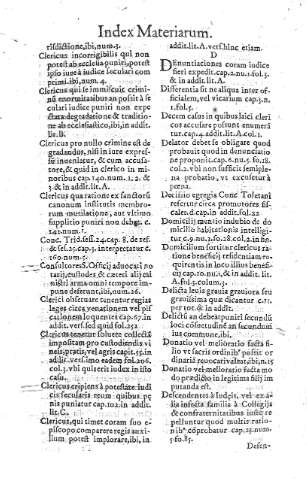 Index Materiarum.
risdictione, ibi, num. 3.
Clericus incorrigibilis qui non
potest ab ecclesia puniri, potest
ipso iure à iudice seculari com
primi, ibi, num. 4.
Clericus qui se immiscuit crimi
nũ enormitatibus an possit à se
culari iudice puniri non expe
ctata degradatione & traditio-
ne ab ecclesiastico, ibi, in addit.
lit. B.
Clericus pro nullo crimine est de
gradandus, nisi in iure expres
sè inueniatur, & cum accusa-
tore, & quid in clerico in mi
noribus cap. 140. num. 1. 2. &
3. & in addit. lit. A.
Clericus qua ratione ex sanctorũ
canonum institutis membro-
rum mutilatione, aut vltimo
supplicio puniri non debet. c.
142. num. 1.
Conc. Trid. sess. 24. cap. 8. de ref.
& sess. 25. cap. 3. interpretatur c.
160. num. 5
Consultores S. Officij aduocati no
tarij, custodes & cæteri alij mi
nistri arma omni tempore im-
pune deferunt, ibi, num. 16.
Clerici obseruare tenentur regias
leges circa venationem vel pi
scationem loquentes cap. 67. in
addit. vers. sed quid fol. 252
Clericus tenetur soluere collectã
impositam pro custodiendis vi
neis, pratis, vel agris cap. 55. in
addit. vers. limo eadem fol. 206.
col. 3. vbi quæritur index in isto
casu.
Clericus eripiens à potestate iudi
cis secularis reum quibus pœ
nis puniatur cap. 102. in addit.
lit. C.
Clericus, qui timet coram suo e-
piscopo comparere regis auxi
lium potest implorare, ibi, in
addit. lit. A. vers. hinc etiam.
D
Denuntiationes coram iudice
fieri expedit. cap. 2. nu. 1. fol. 5.
& in addit. lit. A.
Differentia sit ne aliqua inter of-
ficialem, vel vicarium cap. 3. n.
1. fol. 5.
Decem casus in quibus laici cleri
cos accusare possunt enumerã
tur. cap. 4. addit. lit. A. col. 1.
Delator debet se obligare quod
probauit quod in denuntiatio
ne proponit. cap. 6. nu. 5. fo. 18.
col. 2. vbi non sufficit semiple-
na probatio, vt excusetur à
pœna.
Decisio egregia Conc Toletani
refertur circa promotores fis-
cales. d. cap. in addit fol. 22
Domicilij mutatio indubio de do
micilio habitationis intelligi-
tur c. 9. nu. 2. fo. 28. col. 2. in fin.
Domicilium sortitur clericus ra
tione beneficij residentiam re-
quirentis in loco illius benefi-
cij cap. 10. nu. 1. & in addit. lit.
A. fol. 5. colum. 3.
Delicta leuia grauia grauiora seu
grauissima quæ dicantur c. 11.
per tot. & in addit.
Delictũ an debeat puniri secundũ
loci cõsuetudinẽ an secundum
ius commune, ibi.
Donatio vel melioratio facta fi-
lio vt sacris ordinibus possit or
dinari reuocari valeat, ibi, n. 15
Donatio vel melioratio facta mo
do prædicto in legitima filij im
putanda est.
Descendentes à Iudæis, vel ex a-
lia infecta familia à Collegijs
& confraternitatibus iuste re
pelluntur quod multis ratio-
nibus cõprobatur cap. 12. num.
3. fo. 85.
Descen-